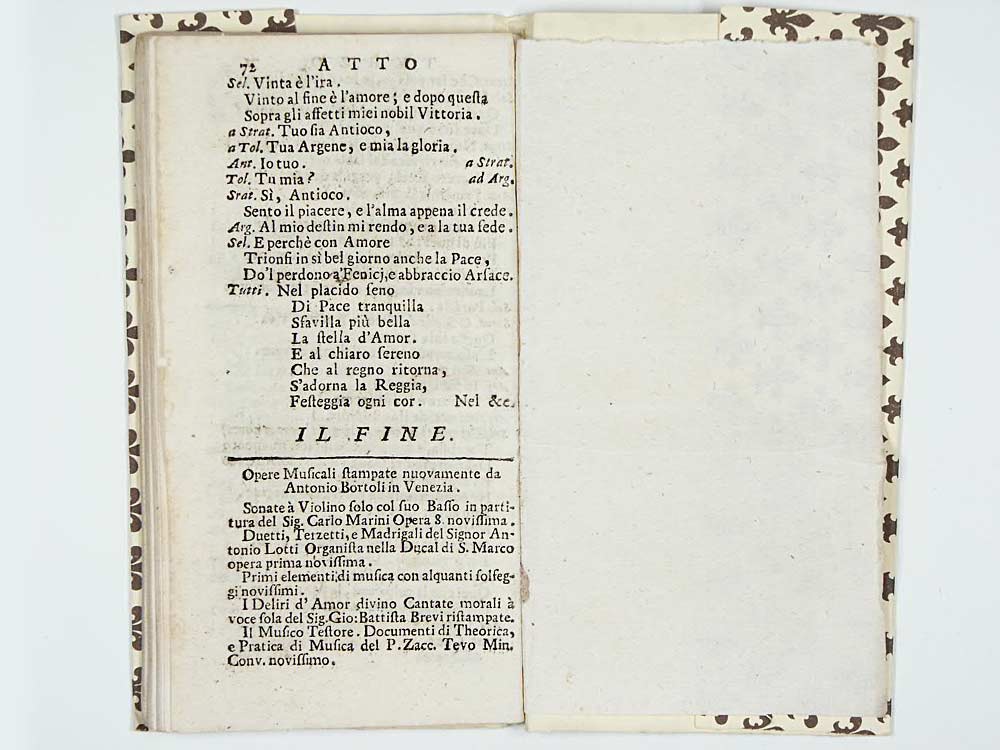 72 ATTO
Sel. Vinta è l'ira.
Vinto al fine è l'amore; e dopo queſta
Sopra gli affetti miei nobil Vittoria.
a Strat. Tuo ſia Antioco,
a Tol. Tua Argene, e mia la gloria.
Ant. Io tuo. a Strat.
Tol. Tu mia? ad Arg.
Srat. Sì, Antioco.
Sento il piacere, e l'alma appena il crede.
Arg. Al mio deſtin mi rendo, e a la tua fede.
Sel. E perchè con Amore
Trionfi in sì bel giorno anche la Pace,
Do'l perdono a'Fenicj, e abbraccio Arſace.
Tutti. Nel placido ſeno
Di Pace tranquilla
Sfavilla più bella
La ſtella d'Amor.
E al chiaro ſereno
Che al regno ritorna,
S'adorna la Reggia,
Feſteggia ogni cor. Nel &c.
IL FINE.
Opere Muſicali ſtampate nuovamente da
Antonio Bortoli in Venezia.
Sonate à Violino ſolo col ſuo Baſſo in parti-
tura del Sig. Carlo Marini Opera 8. noviſſima.
Duetti, Terzetti, e Madrigali del Signor An-
tonio Lotti Organiſta nella Ducal di S. Marco
opera prima noviſſima.
Primi elementi di muſica con alquanti ſolfeg-
gi noviſſimi.
I Deliri d'Amor divino Cantate morali à
voce ſola del Sig. Gio: Battiſta Brevi riſtampate.
Il Muſico Teſtore. Documenti di Theorica,
e Pratica di Muſica del P. Zacc. Tevo Min.
Conv. noviſſimo.